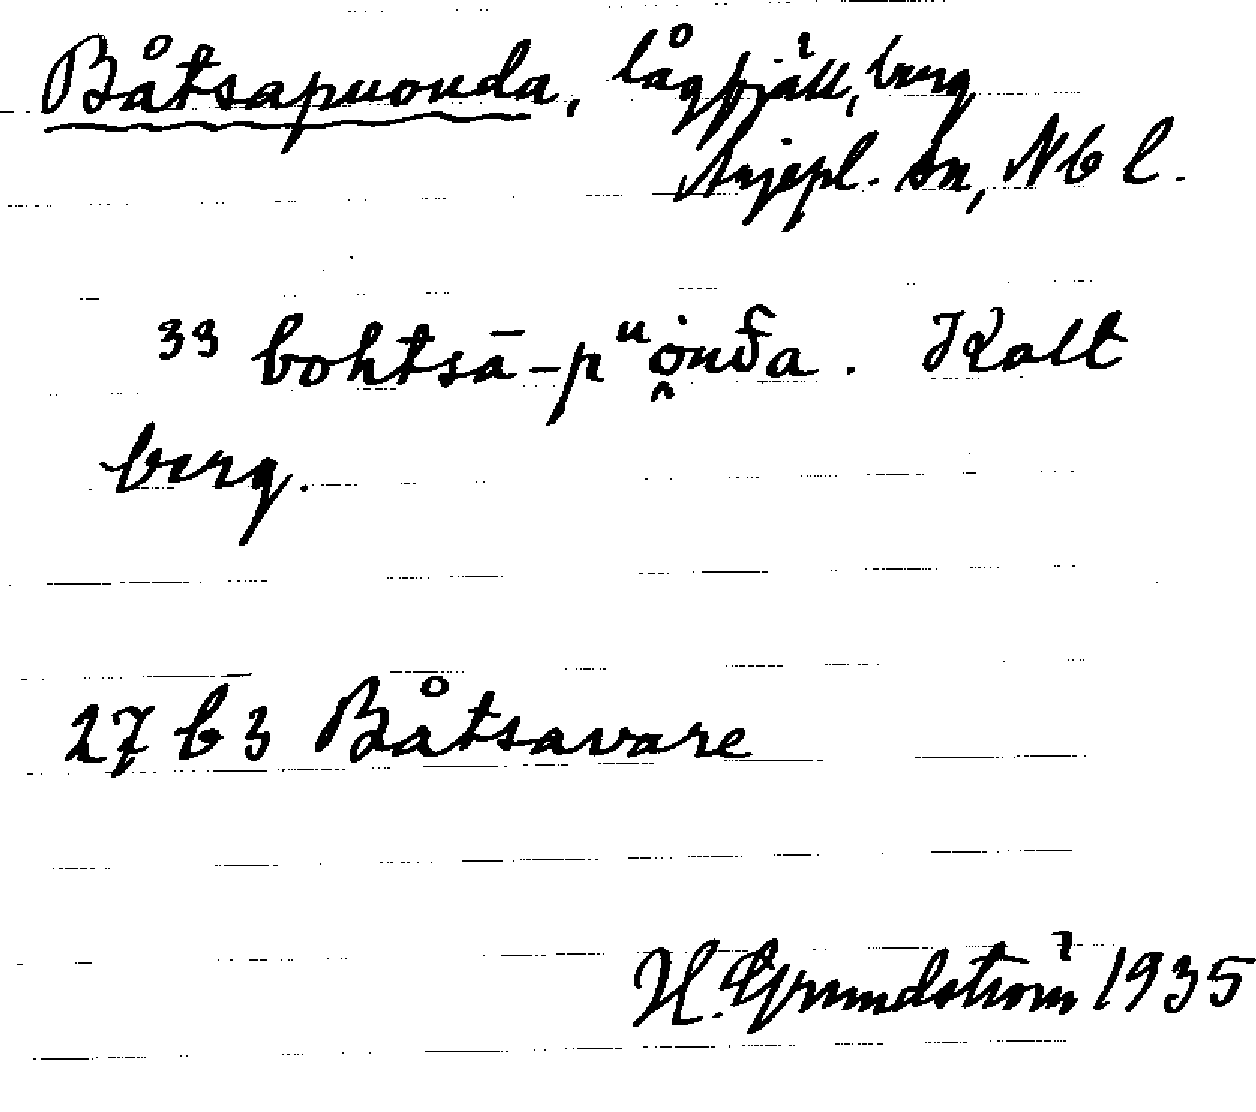 Båtsapuouda, lågfjäll, berg
Arjepl. sn, Nb l.
33 bohtsā-pᵘȯ̭nđa. Kalt
berg.
27 b 3 Båtsavare
H. Grundström 1935